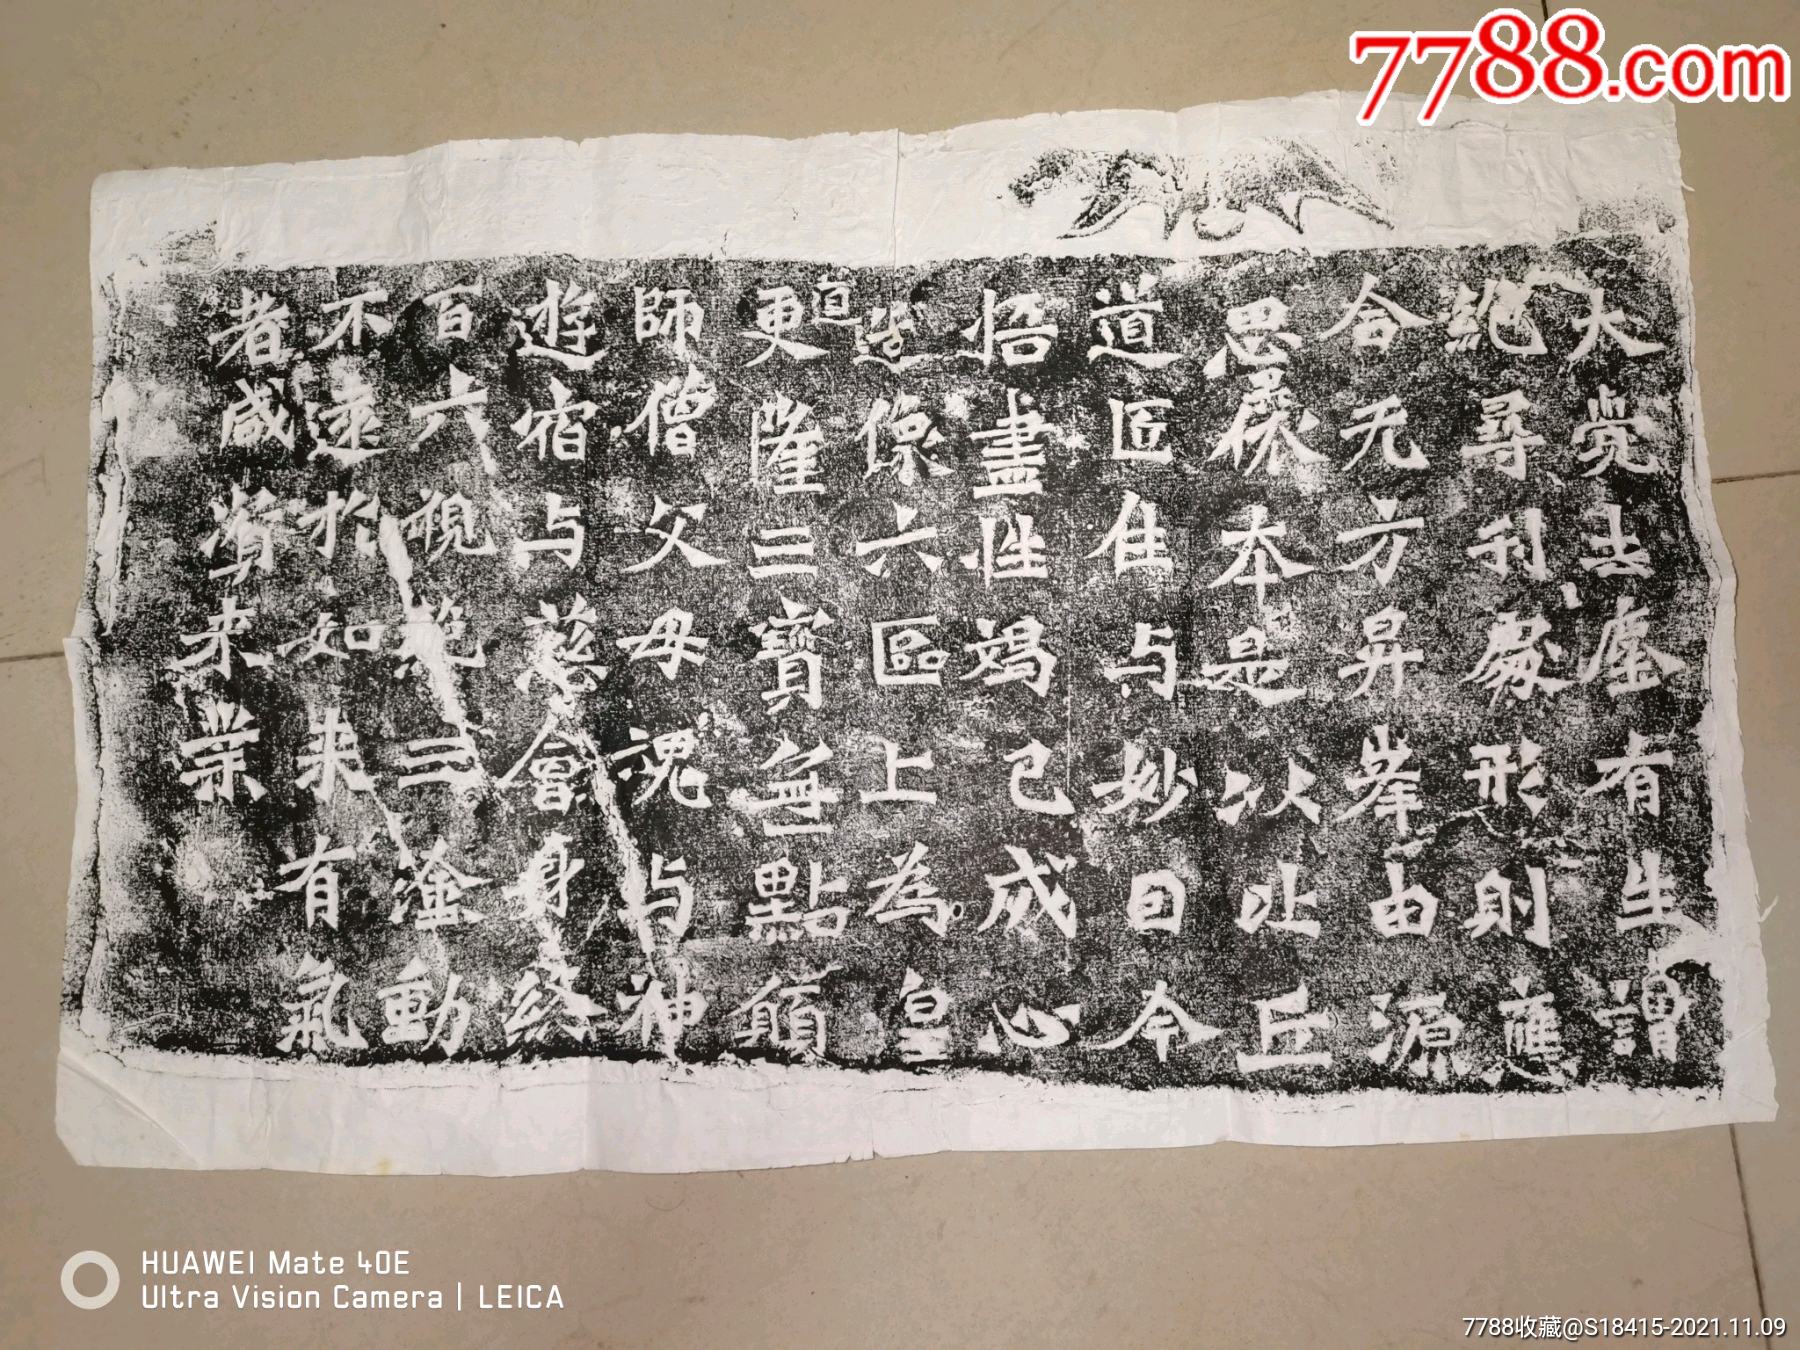 7788.com
大覺去塵有生謂
絶尋形則應
合无方昇由源
思本是以丘
道匠住与妙曰今
悟盡性竭己成心
造像六區上為皇
道
更隆三寶無點願
師僧父母魂与神
遊宿与慈會身終
百六視三塗動
不遠於如来有氣
者咸濟未業
HUAWEI Mate 40E
Ultra Vision Camera | LEICA
7788收藏@S18415-2021.11.09